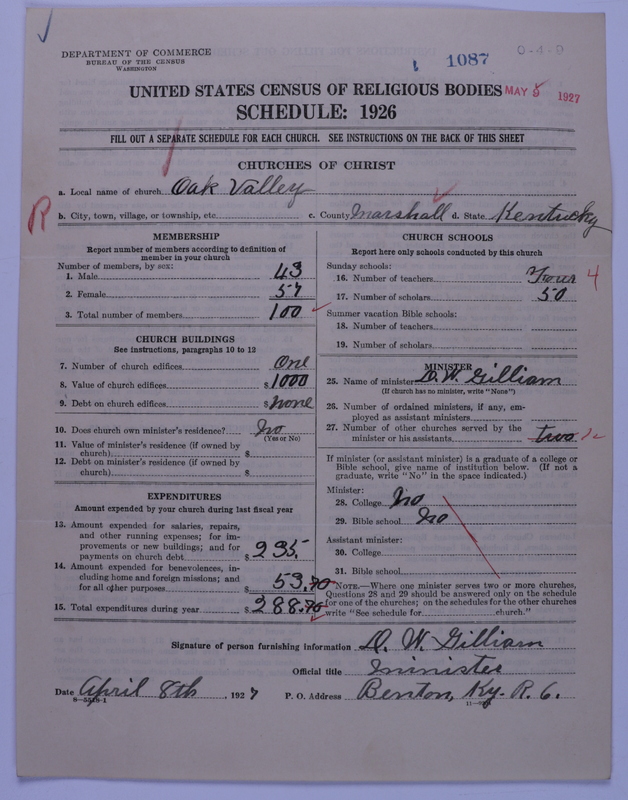 DEPARTMENT OF COMMERCE
BUREAU OF THE CENSUS
WASHINGTON
1087
0-4-9
UNITED STATES CENSUS OF RELIGIOUS BODIES
MAY 9 1927
SCHEDULE: 1926
FILL OUT A SEPARATE SCHEDULE FOR EACH CHURCH. SEE INSTRUCTIONS ON THE BACK OF THIS SHEET
CHURCHES OF CHRIST
a. Local name of church Oak Valley
R
b. City, town, village, or township, etc. c. County Marshall d. State Kentucky
MEMBERSHIP
Report number of members according to definition of
member in your church
Number of members, by sex:
1. Male 43
2. Female 57
3. Total number of members 100
CHURCH BUILDINGS
See instructions, paragraphs 10 to 12
7. Number of church edifices One
8. Value of church edifices $1000
9. Debt on church edifices $none
10. Does church own minister's residence? No
(Yes or No)
11. Value of minister's residence (if owned by
church) $
12. Debt on minister's residence (if owned by
church) $
EXPENDITURES
Amount expended by your church during last fiscal year
13. Amount expended for salaries, repairs,
and other running expenses; for im-
provements or new buildings; and for
payments on church debt $235.
14. Amount expended for benevolences, in-
cluding home and foreign missions; and
for all other purposes $53.70
15. Total expenditures during year $288.70
CHURCH SCHOOLS
Report here only schools conducted by this church
Sunday schools:
16. Number of teachers Four 4
17. Number of scholars 50
Summer vacation Bible schools:
18. Number of teachers
19. Number of scholars
MINISTER
25. Name of minister D. W. Gilliam
(If church has no minister, write "None")
26. Number of ordained ministers, if any, em-
ployed as assistant ministers
27. Number of other churches served by the
minister or his assistants two 2
If minister (or assistant minister) is a graduate of a college or
Bible school, give name of institution below. (If not a
graduate, write "No" in the space indicated.)
Minister:
28. College No
29. Bible school No
Assistant minister:
30. College
31. Bible school
NOTE.—Where one minister serves two or more churches,
Questions 28 and 29 should be answered only on the schedule
for one of the churches; on the schedules for the other churches
write "See schedule for church."
Signature of person furnishing information D. W. Gilliam
Official title Minister
Date April 8th, 1927 P. O. Address Benton, Ky. R. 6.
8-5518-1